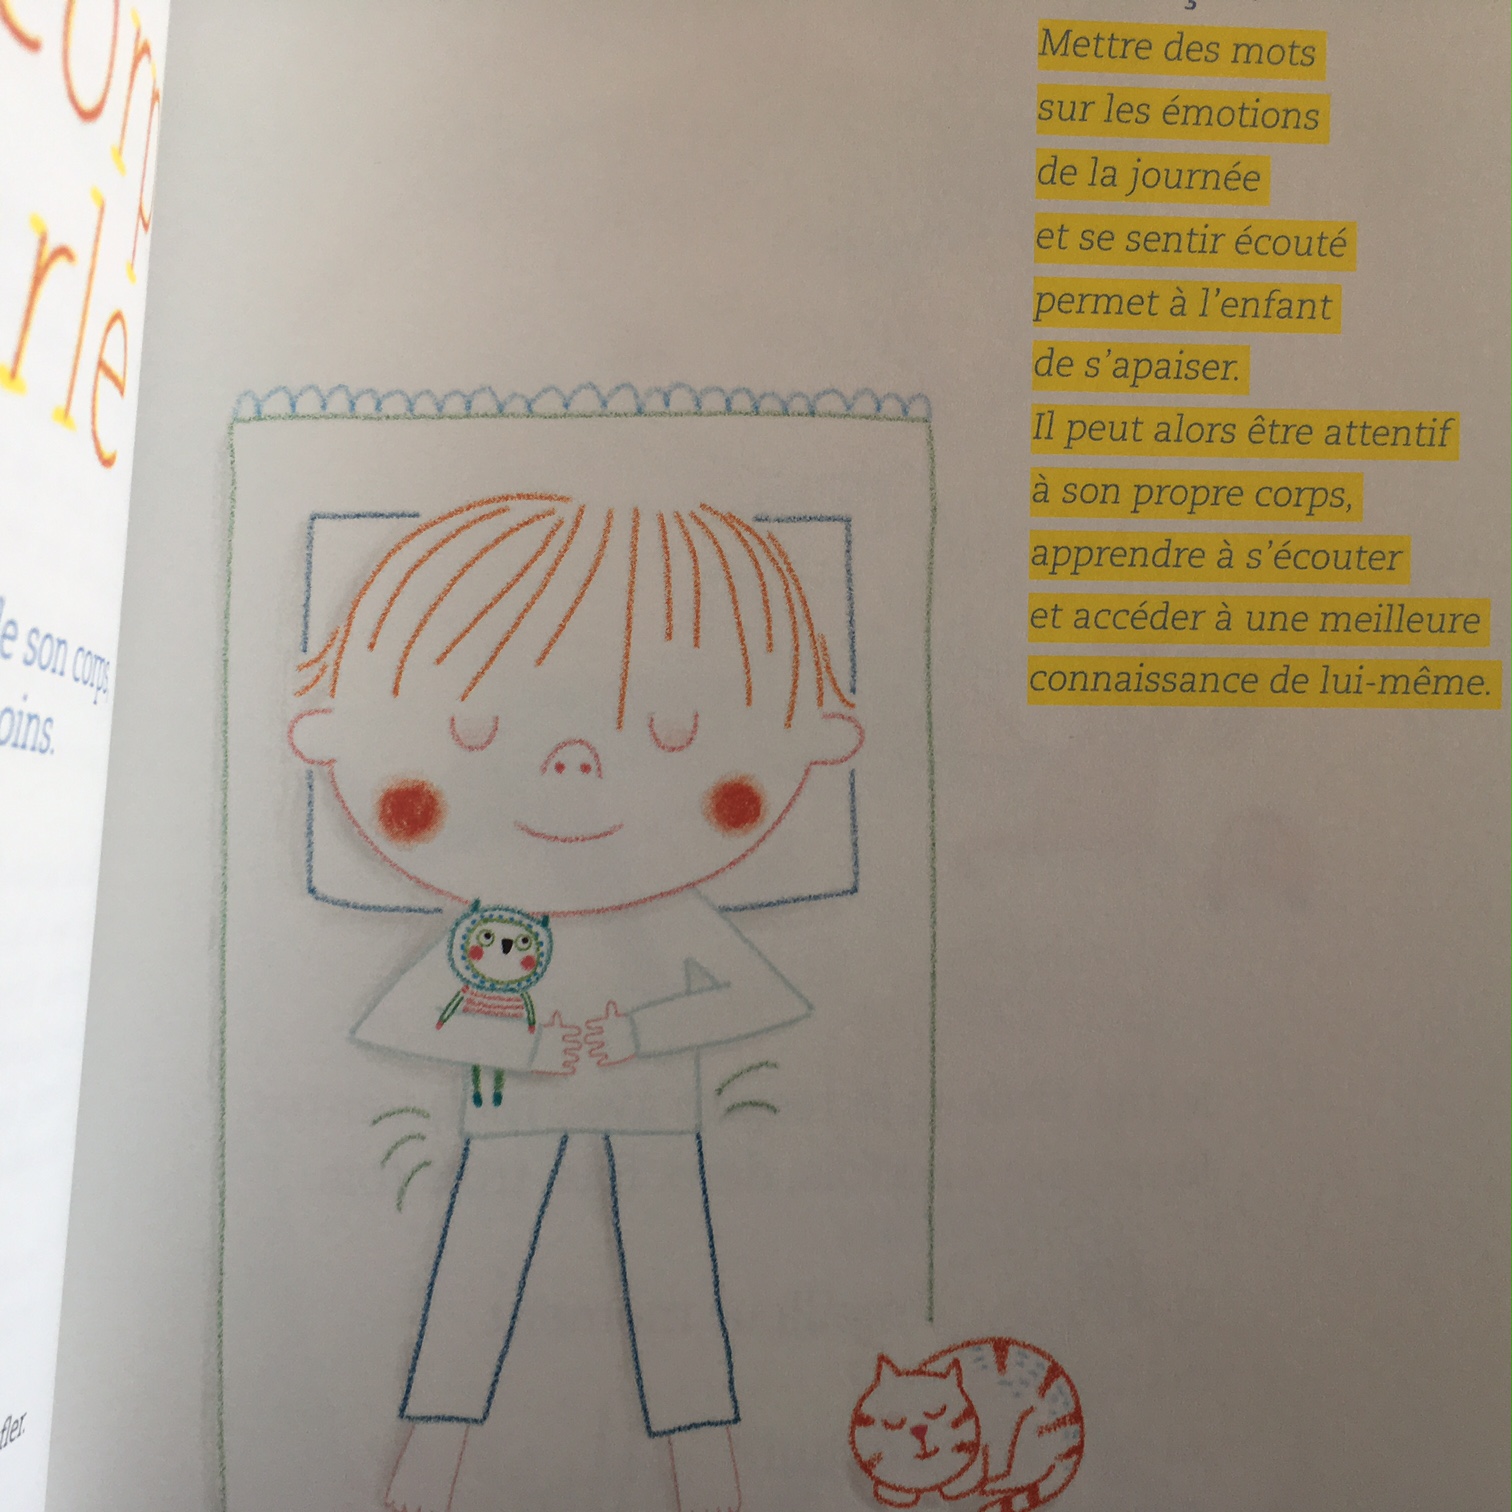 rle
le son corps,
oins.
fler.
Mettre des mots
sur les émotions
de la journée
et se sentir écouté
permet à l'enfant
de s'apaiser.
Il peut alors être attentif
à son propre corps,
apprendre à s'écouter
et accéder à une meilleure
connaissance de lui-même.